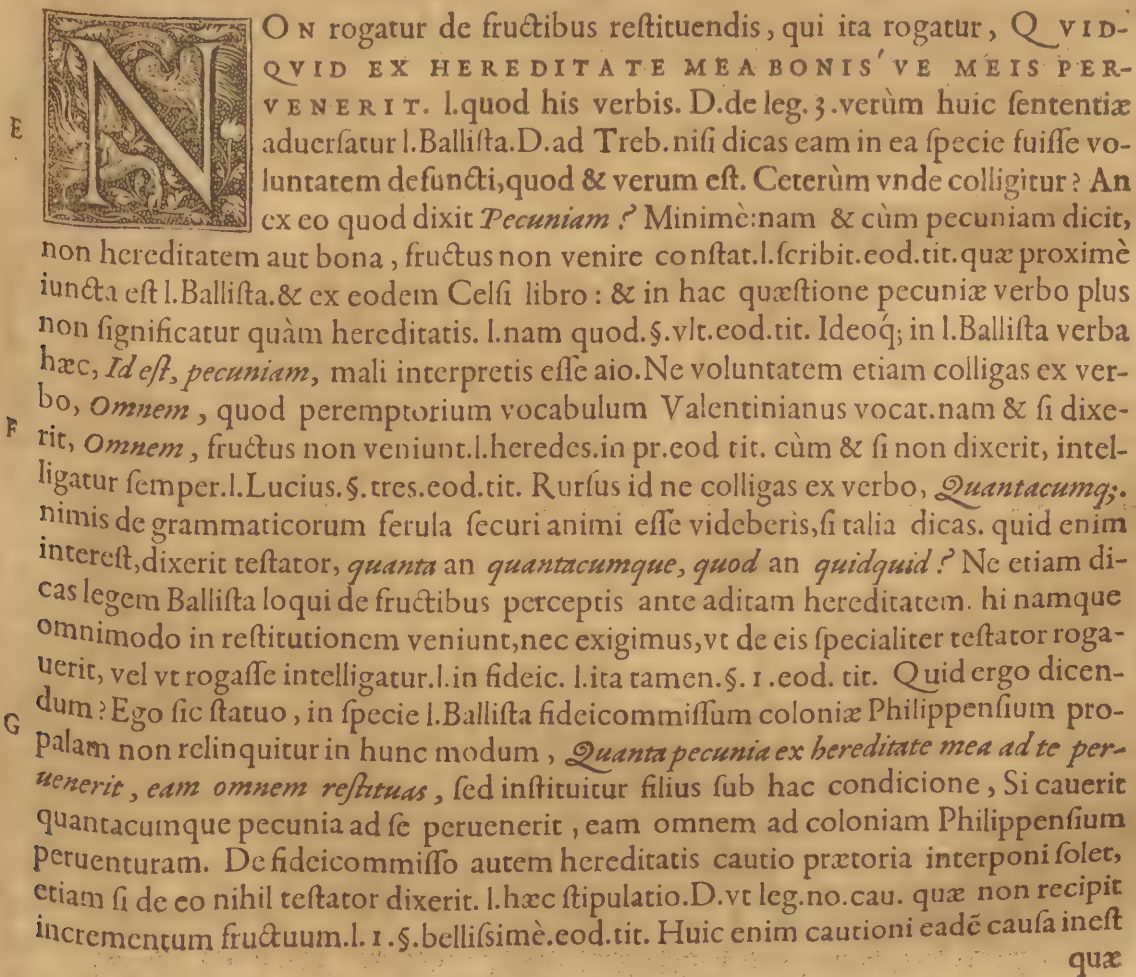 NON rogatur de fructibus reſtituendis, qui ita rogatur, QVID-
QVID EX HEREDITATE MEA BONIS'VE MEIS PER-
VENERIT. l.quod his verbis. D.de leg. 3.verùm huic ſententiæ
E
aduerſatur l.Balliſta.D.ad Treb.niſi dicas eam in ea ſpecie fuiſſe vo-
luntatem defuncti,quod & verum eſt. Ceterùm vnde colligitur? An
ex eo quod dixit Pecuniam? Minimè:nam & cùm pecuniam dicit,
non hereditatem aut bona, fructus non venire conſtat.l.ſcribit.eod.tit.quæ proximè
iuncta eſt l.Balliſta.& ex eodem Celſi libro: & in hac quæſtione pecuniæ verbo plus
non ſignificatur quàm hereditatis. l.nam quod.§.vlt.eod.tit. Ideoq́; in l.Balliſta verba
hæc, Id eſt, pecuniam, mali interpretis eſſe aio.Ne voluntatem etiam colligas ex ver-
bo, Omnem, quod peremptorium vocabulum Valentinianus vocat.nam & ſi dixe-
F
rit, Omnem, fructus non veniunt.l.heredes.in pr.eod tit. cùm & ſi non dixerit, intel-
ligatur ſemper.l.Lucius.§.tres.eod.tit. Rurſus id ne colligas ex verbo, Quantacumq;.
nimis de grammaticorum ferula ſecuri animi eſſe videberis,ſi talia dicas. quid enim
intereſt,dixerit teſtator, quanta an quantacumque, quod an quidquid? Ne etiam di-
cas legem Balliſta loqui de fructibus perceptis ante aditam hereditatem. hi namque
omnimodo in reſtitutionem veniunt,nec exigimus,vt de eis ſpecialiter teſtator roga-
uerit, vel vt rogaſſe intelligatur.l.in fideic. l.ita tamen.§. 1.eod. tit. Quid ergo dicen-
dum? Ego ſic ſtatuo, in ſpecie l.Balliſta fideicommiſſum coloniæ Philippenſium pro-
G
palam non relinquitur in hunc modum, Quanta pecunia ex hereditate mea ad te per-
uenerit, eam omnem reſtituas, ſed inſtituitur filius ſub hac condicione, Si cauerit
quantacumque pecunia ad ſe peruenerit, eam omnem ad coloniam Philippenſium
peruenturam. De fideicommiſſo autem hereditatis cautio prætoria interponi ſolet,
etiam ſi de eo nihil teſtator dixerit. l.hæc ſtipulatio.D.vt leg.no.cau. quæ non recipit
incrementum fructuum.l. 1.§.belliſsimè.eod.tit. Huic enim cautioni eadē cauſa ineſt
quæ